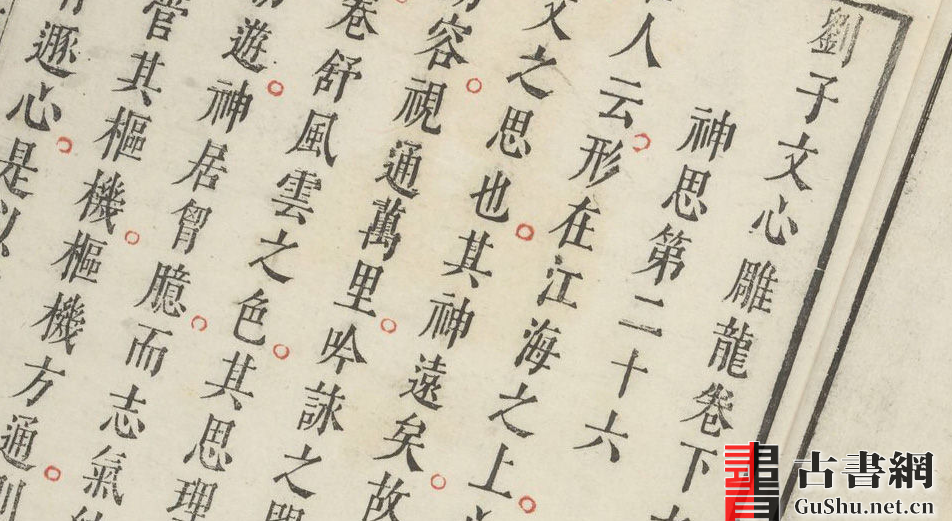 劉子文心雕龍卷下
神思第二十六
人云。形在江海之上。
文之思也。其神遠矣。故
容。視通萬里。吟詠之
卷舒風雲之色。其思理
遊。神居胷臆。而志氣
管其樞機。樞機方通。則
遯心。是以
古書網
GuShu.net.cn